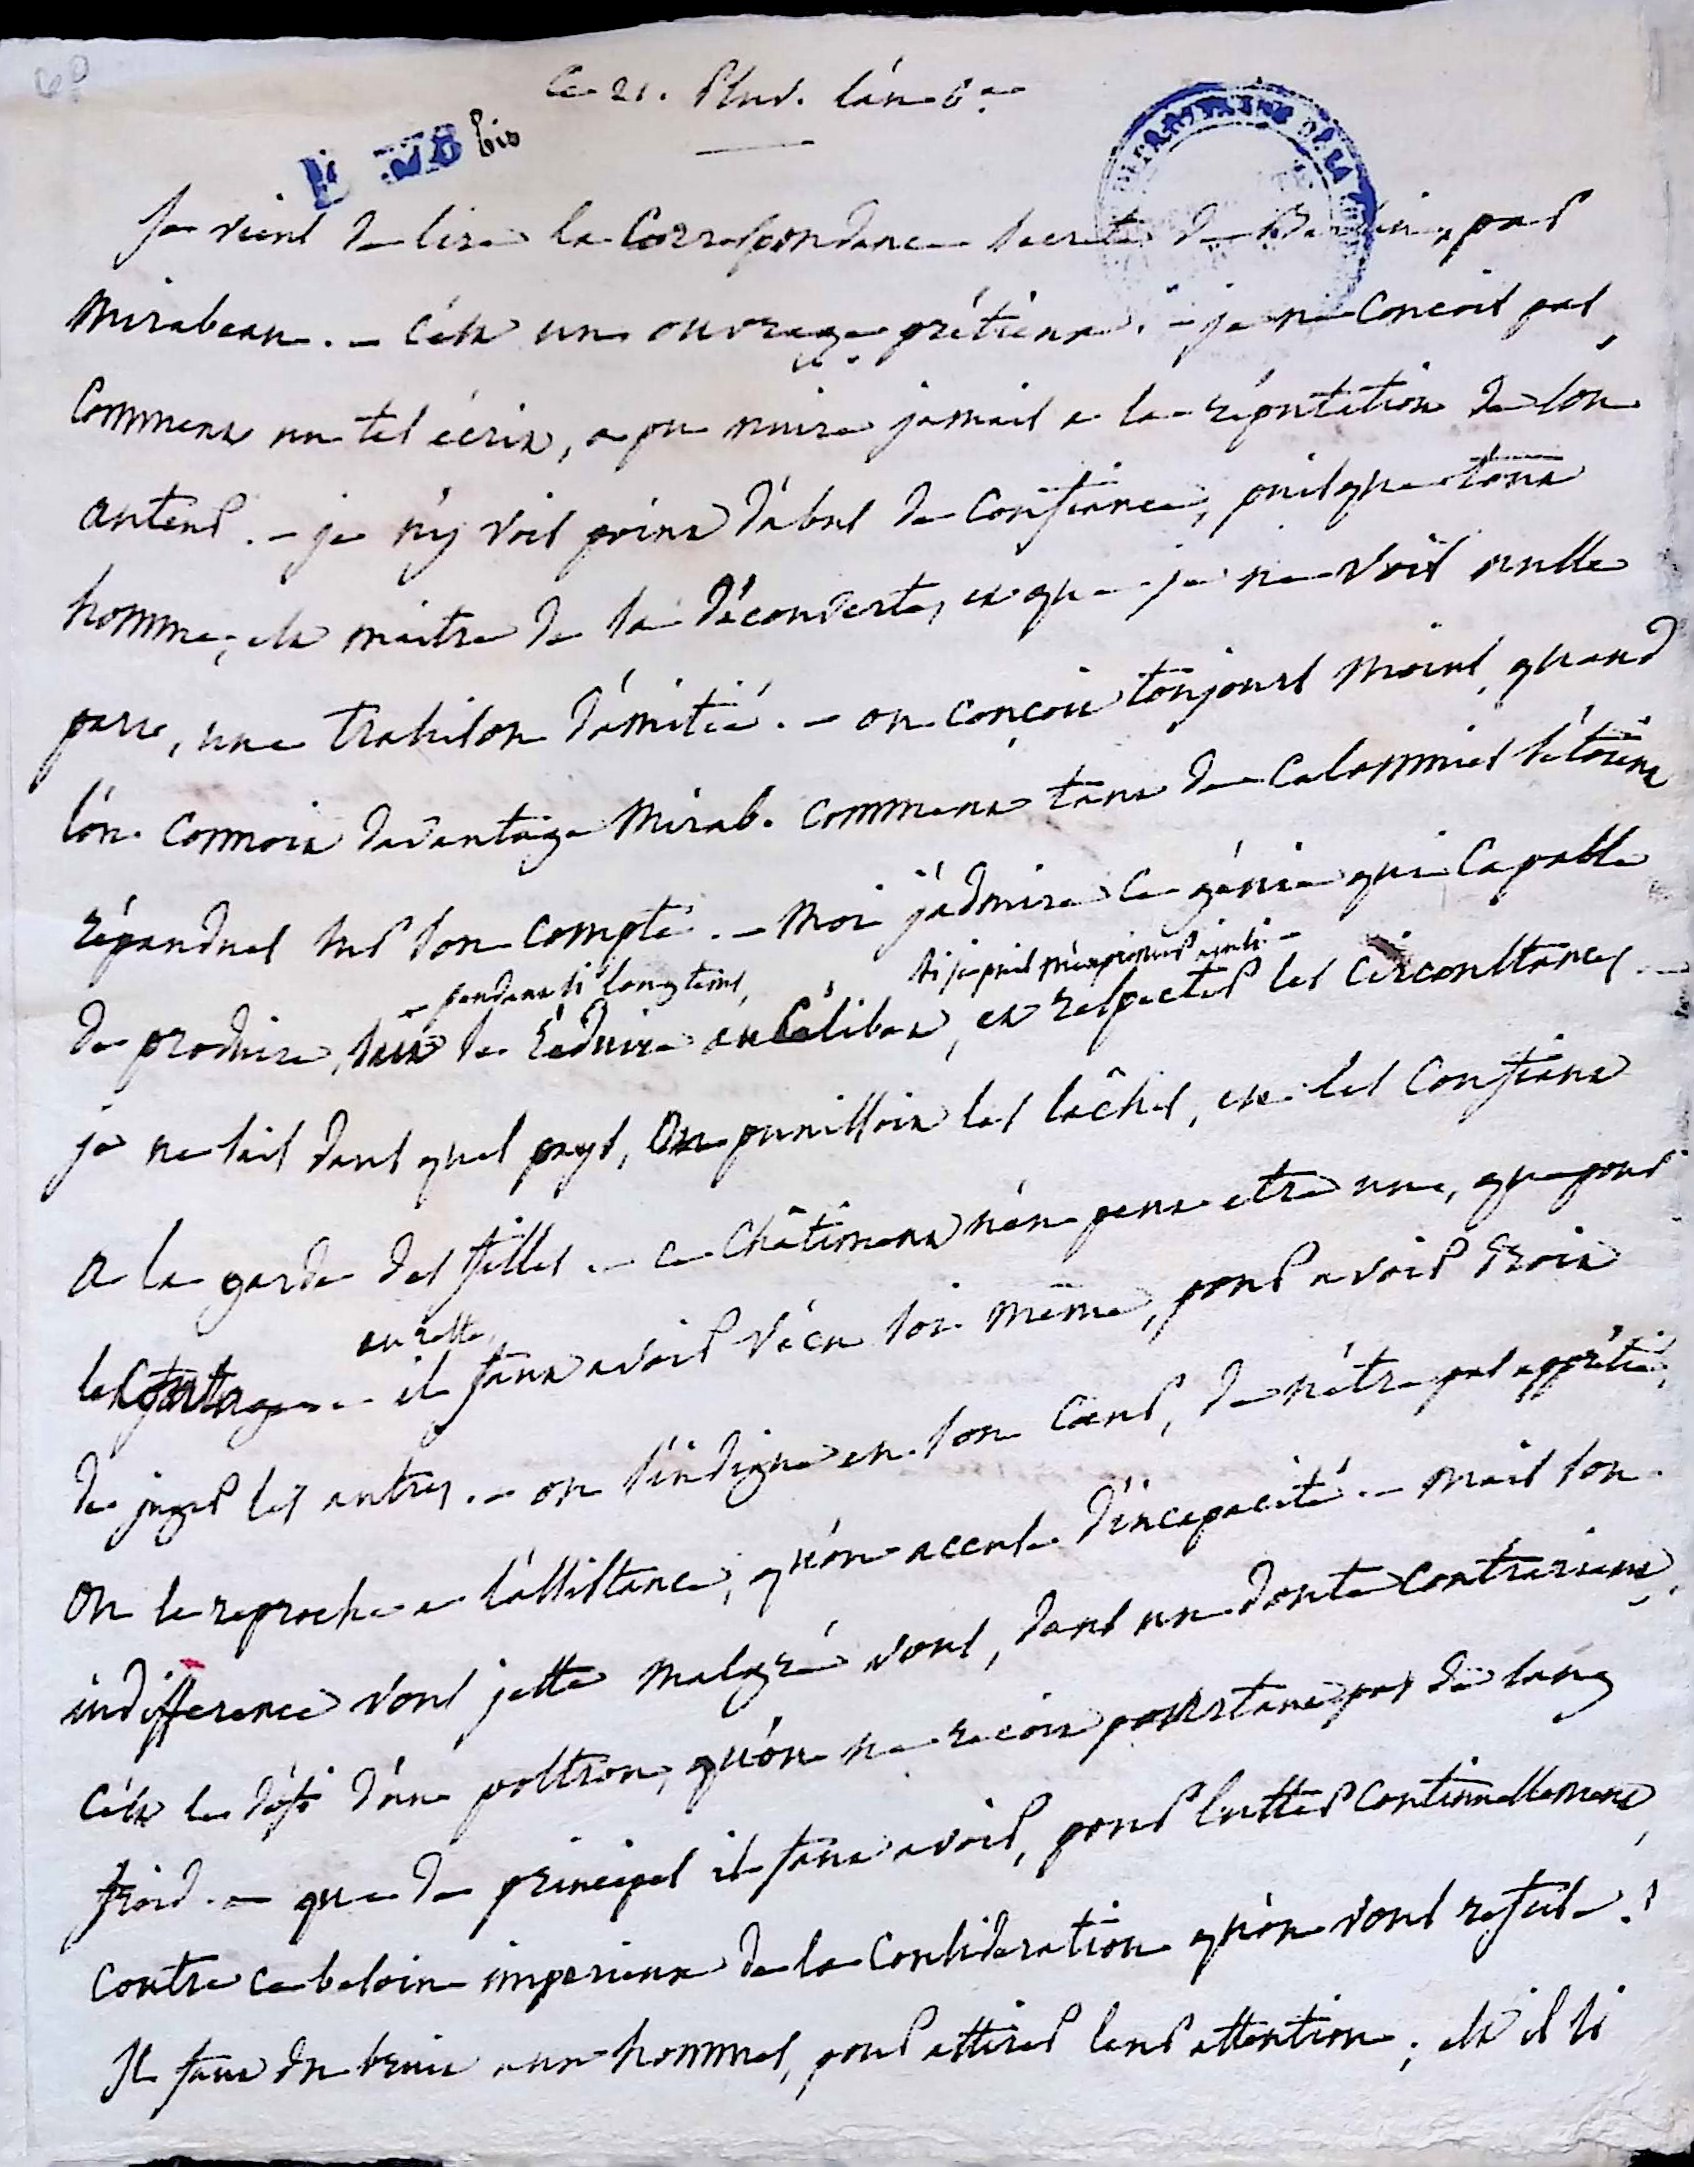 ce 21. Pluv. l'án 6.e
bis
Je viens de lire la Correspondance secrete de Berlin, par
Mirabeau. — c'ést un ouvrage prétieux. — je ne conçois pas,
comment un tel écrit, a pu nuire jamais a la réputation de son
auteur. — je n'y vois point d'ábus de confiance, puisque tout
homme, est maitre de sa découverte, et que je ne vois nulle
part, une trahison d'ámitié. — on conçoit toujours moins, quand
l'ón connoit davantage Mirab. comment tant de calomnies s'étoient
répandues sur son compte. — moi j'ádmire ce génie qui capable
— pendant si longtems, si je puis m'éxprimer ainsi —
de produire, sait se réduire au célibat, et respecter les circonstances. —
je ne sais dans quel pays, on punissoit les lâches, en les confiant
a la garde des filles. — ce châtiment n'én peut etre un, que pour
au reste,
le courage. — il faut avoir vécu soi même, pour avoir droit
de juger les autres. — on s'indigne en son coeur, de n'être pas apprétié,
on se reproche a l'ássistance, qu'ón accuse d'incapacité. — mais son
indifference vous jette malgré vous, dans un doute contrariant,
c'ést le défi d'ún poltron, qu'ón ne reçoit pourtant pas de sang
froid. — que de principes il faut avoir, pour lutter continuellement,
contre ce besoin imperieux de la consideration qu'ón vous refuse!
Il faut du bruit aux hommes, pour attirer leur attention; est il si